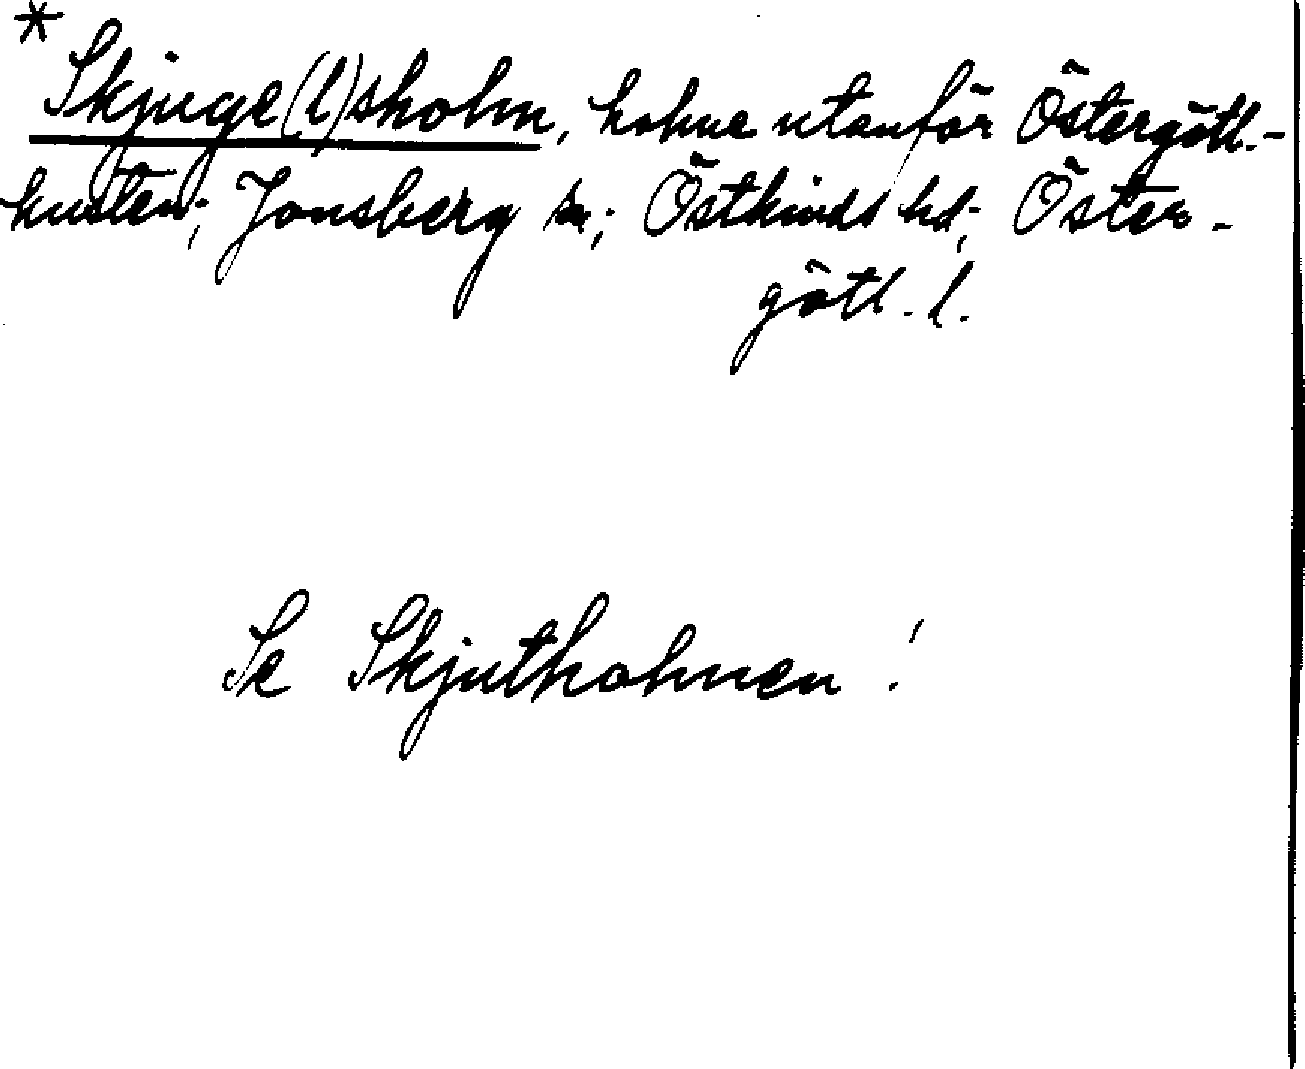 * Skjuge(l)sholm, holme utanför Östergötl.-
kusten; Jonsberg sn; Östkinds hd; Öster-
götl. l.
Se Skjutholmen !